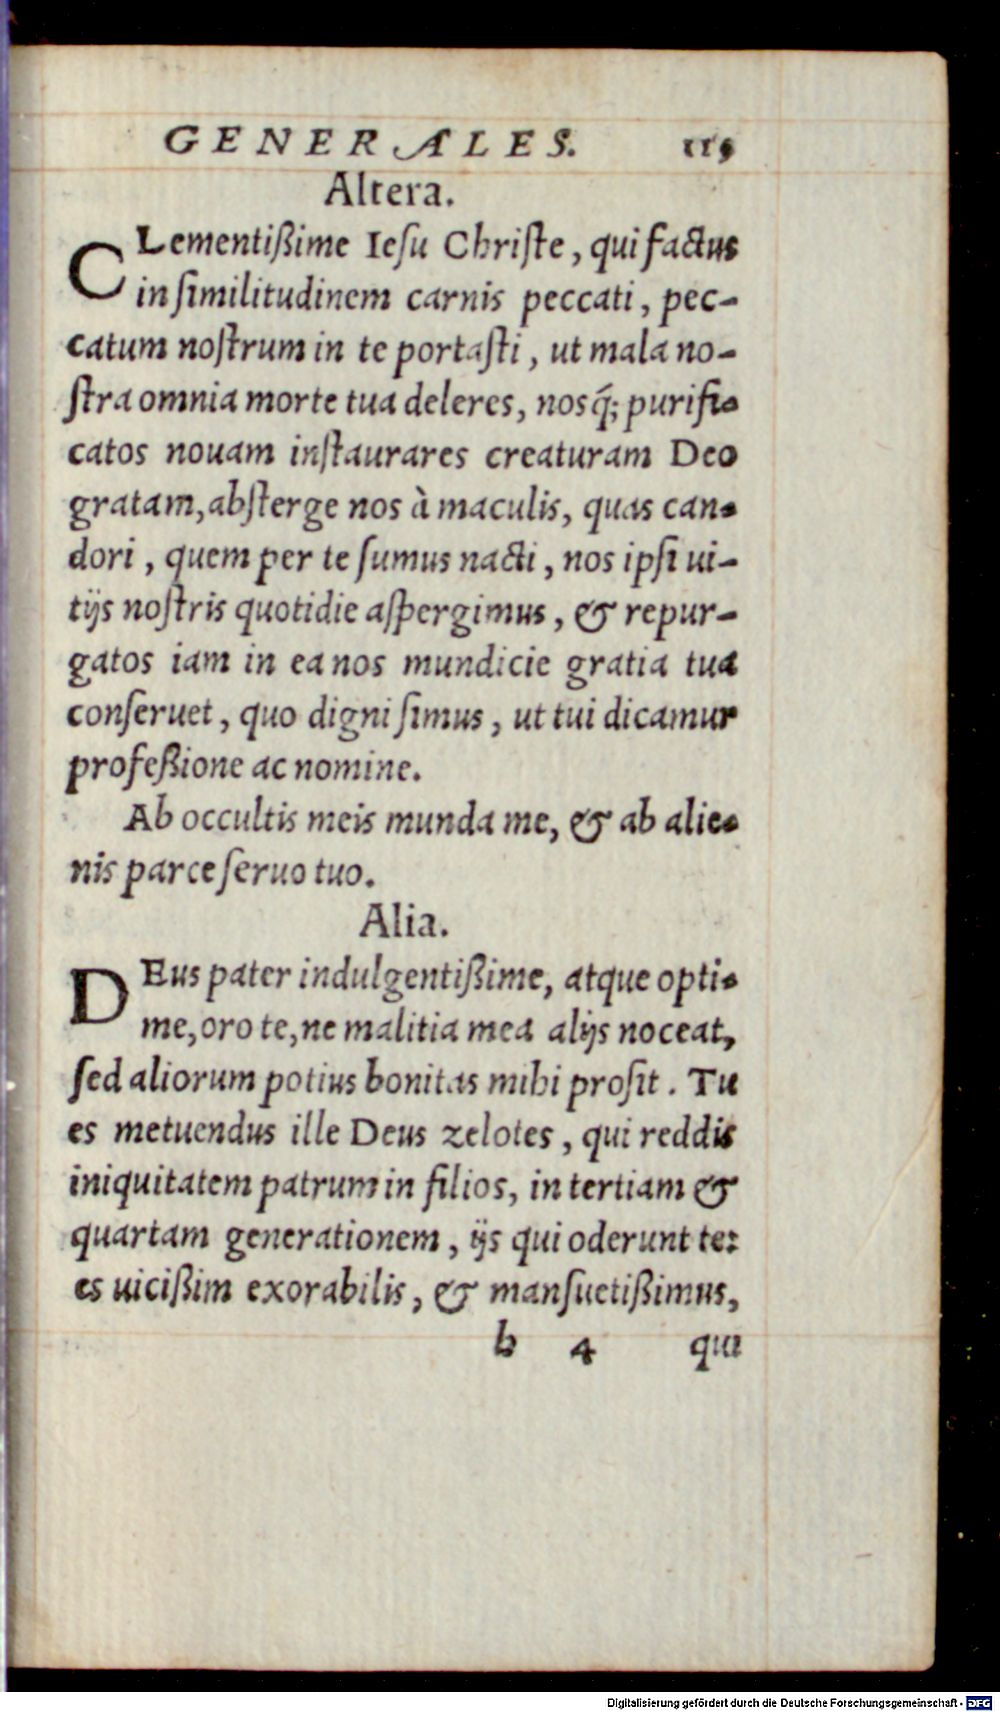 GENERALES. 119
Altera.
CLementißime Ieſu Chriſte, qui factus
in ſimilitudinem carnis peccati, pec-
catum noſtrum in te portaſti, ut mala no-
ſtra omnia morte tua deleres, nosq́; purifi-
catos nouam inſtaurares creaturam Deo
gratam, abſterge nos à maculis, quas can-
dori, quem per te ſumus nacti, nos ipſi ui-
tijs noſtris quotidie aſpergimus, & repur-
gatos iam in ea nos mundicie gratia tua
conſeruet, quo digni ſimus, ut tui dicamur
profeßione ac nomine.
Ab occultis meis munda me, & ab alie-
nis parce ſeruo tuo.
Alia.
DEus pater indulgentißime, atque opti-
me, oro te, ne malitia mea alijs noceat,
ſed aliorum potius bonitas mihi proſit. Tu
es metuendus ille Deus zelotes, qui reddis
iniquitatem patrum in filios, in tertiam &
quartam generationem, ijs qui oderunt te:
es uicißim exorabilis, & manſuetißimus,
h 4 qui
Digitalisierung gefördert durch die Deutsche Forschungsgemeinschaft - DFG